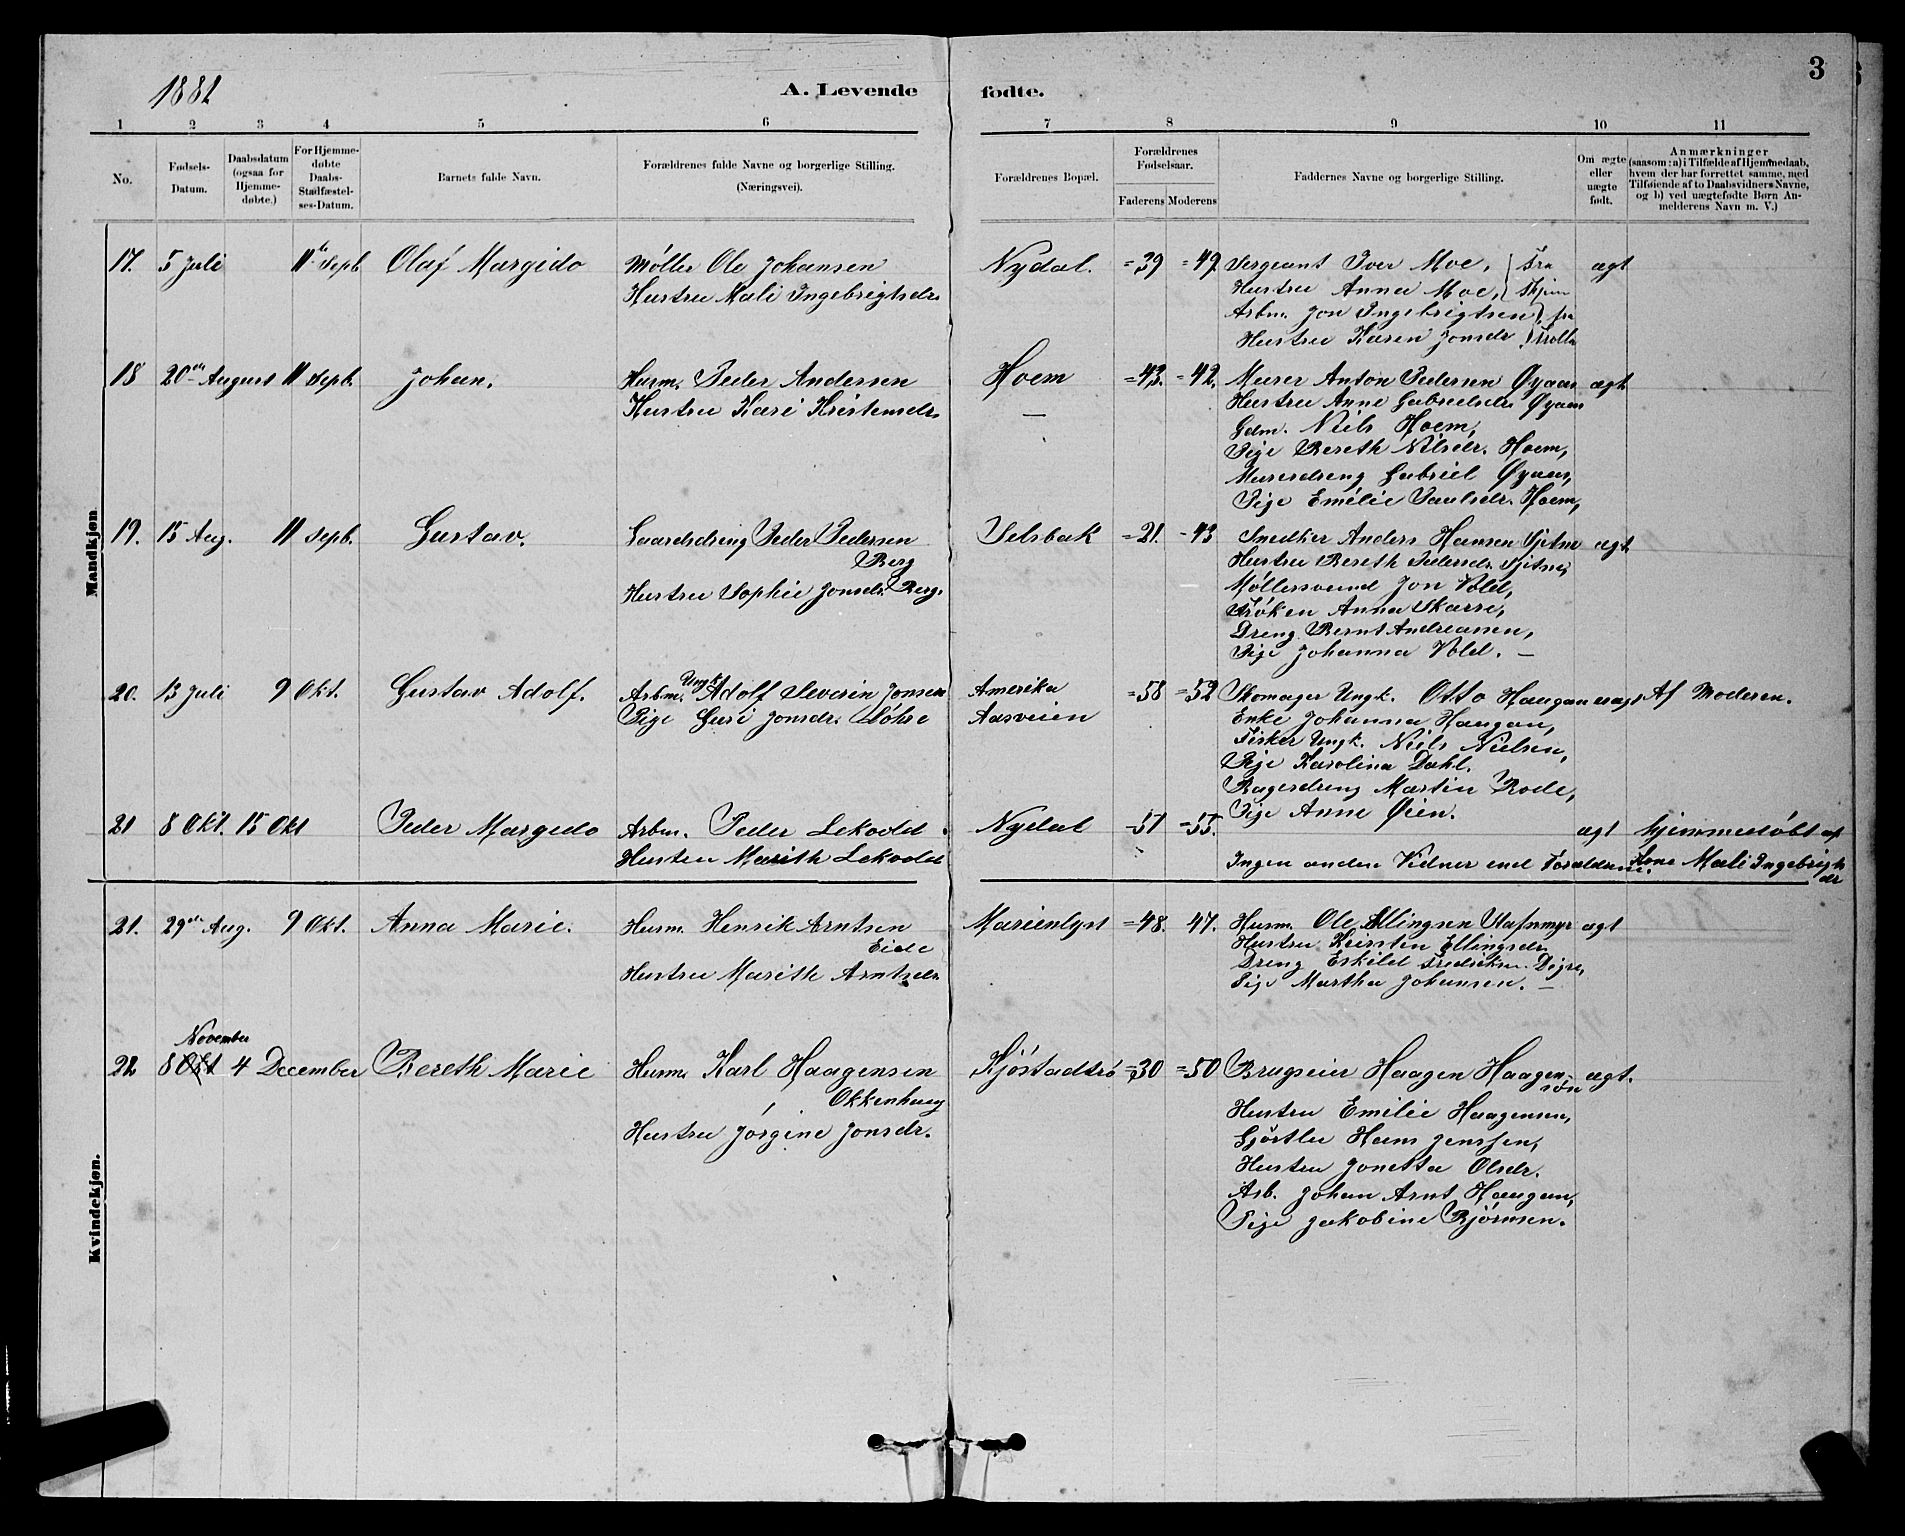 1881
A. Levende fødte.
3
1 2 3 4 5 6 7 8 9 10 11
No.
Fødsels-Datum.
Daabsdatum (ogsaa for Hjemme-døbte.)
For Hjemme-døbte Daabs-Stadfæstel-ses-Datum.
Barnets fulde Navn.
Forældrenes fulde Navne og borgerlige Stilling.
(Næringsvei).
Forældrenes Bopæl.
Forældrenes Fødselsaar.
Faderens Moderens
Faddernes Navne og borgerlige Stilling.
Om ægte eller uægte født.
Anmærkninger
(saasom: a) i Tilfælde af Hjemmedaab,
hvem der har forrettet samme, med
Tilføiende af to Daabsvidners Navne,
og b) ved uægtefødte Børn An-
melderens Navn m. V.)
Mandkjøn.
17. 5 Juli 11te Sepb Olaf Margido Møller Ole Johansen Nydal. =39 =49 Sergeant Iver Moe, Fra ægt
Hustru Mali Ingebrigtsdr Hustru Anna Moe,
Arbm. Jon Ingebrigtsen, fra
Hustru Karen Jonsdr
18 20de August 11 Sepb. Johan. Husm. Peder Andersen Hoem =43. =42. Murer Anton Pedersen Øyaas ægt
Hustru Kari Kristensdr — Hustru Anne Gabrielsdr Øyaas
Gdm. Niels Hoem,
Pige Bereth Nilsdr. Hoem,
Murerdreng Gabriel Øyaas,
Pige Emilie Paulsdr. Hoem,
19. 15 Aug. 11 Sepb. Gustav. Gaardsdreng Peder Pedersen Selsbak =21. =43 Snedker Anders Hansen Sjetne ægt
Berg Hustru Bereth Pedersdr. Sjetne,
Hustru Sophie Jonsdr. Berg. Møllersvend Jon Vold,
Frøken Anna Skarre,
Dreng Bernt Andreasen,
Pige Johanna Vold. —
20. 13 Juli 9 Okt. Gustav Adolf. Arbm. Ungk. Adolf Severin Jonsen Amerika =58 =52 Skomager Ungk. Otto Haugan uægt Af Moderen.
Pige Guri Jonsdr. Løhre Aasveien Enke Johanna Haugan,
Fisker Ungk. Niels Nielsen,
Pige Karolina Dahl.
Bagerdreng Martin Rode,
Pige Anne Øien.
21 8 Okt. 15 Okt Peder Margido Arbm. Peder Lekvold. Nydal =51 =55. ægt hjemmedøbt af
Hustru Marith Lekvold Ingen anden Vidner end Forældrene. Kone Mali Ingebrigts
dr
Kvindekjøn.
21. 29de Aug. 9 Okt. Anna Marie. Husm. Henrik Arntsen Marienlyst =48. 47. Husm. Ole Ellingsen Stafnmyr ægt
Eide Hustru Kirsten Ellingsdr
Hustru Marith Arntsdr. Dreng Eskild Fredriksen Digre,
Pige Martha Johansen. —
November
22 8 Okt 4 December Bereth Marie Husm. Karl Haagensen Kjøstadtrø =30 =50 Brugseier Haagen Haagen- ægt.
Okkenhaug søn
Hustru Jørgine Jonsdr. Hustru Emilie Haagensen,
Gjørtler Hans Jenssen,
Hustru Jonetta Olsdr.
Arb. Johan Arnt Haugan,
Pige Jakobine Bjørnsen.